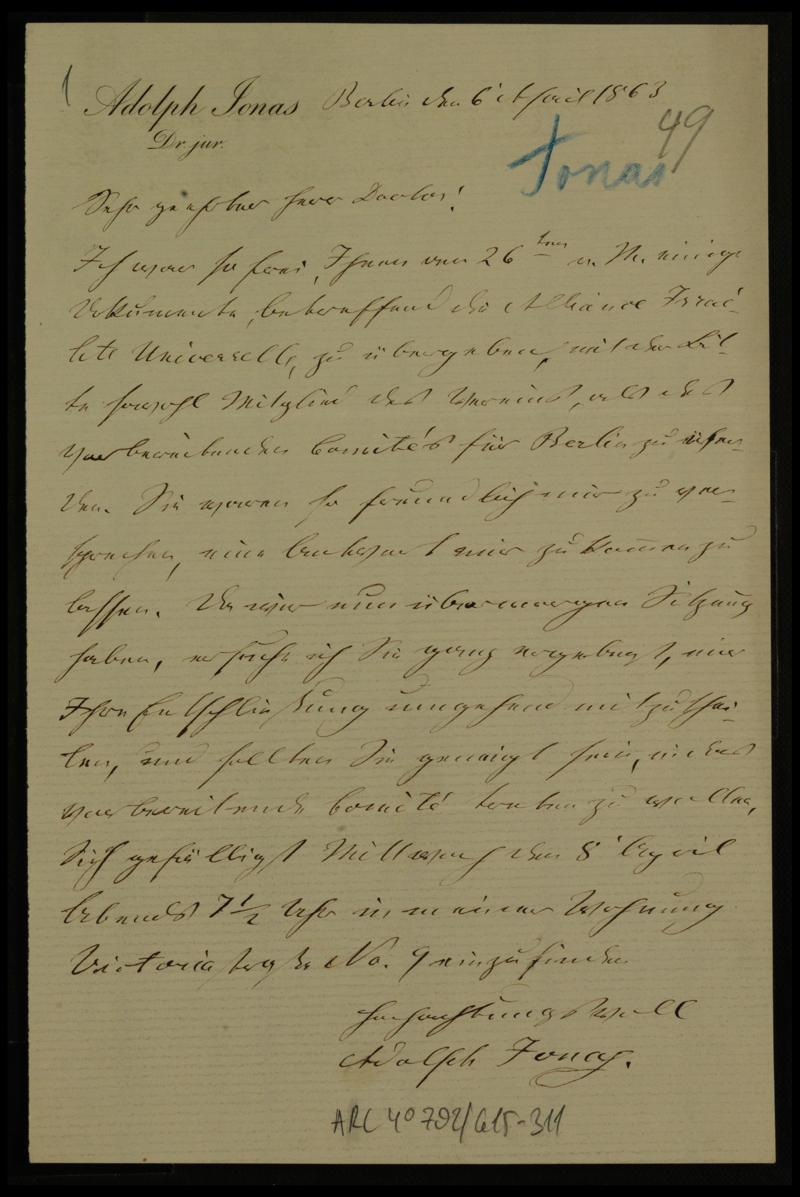 1
Adolph Jonas Berlin den 6' April 1863
Dr. jur.
49
Jonas
Sehr geehrter Herr Doctor!
Ich war so frei, Ihnen am 26ten v. M. einige
Dokumente, betreffend die Alliance Israé-
lite Universelle, zu übergeben, mit der Bit-
te sowohl Mitglied des Vereins, als des
vorbereitenden Comités für Berlin zu
den. Sie waren so freundlich mir zu ver-
sprechen, eine Antwort mir zukommen zu
lassen. Da wir nun übermorgen Sitzung
haben, ersuche ich Sie ganz ergebenst, mir
Ihre Entschließung umgehend mitzuthei-
len, und sollten Sie geneigt sein, in das
vorbereitende Comité treten zu wollen,
Sich gefälligst Mittwoch den 8' April
Abends 7 1/2 Uhr in meiner Wohnung
Victoriastraße No. 9 einzufinden
Hochachtungsvoll
Adolph Jonas.
ARC 4° 792/G15-311